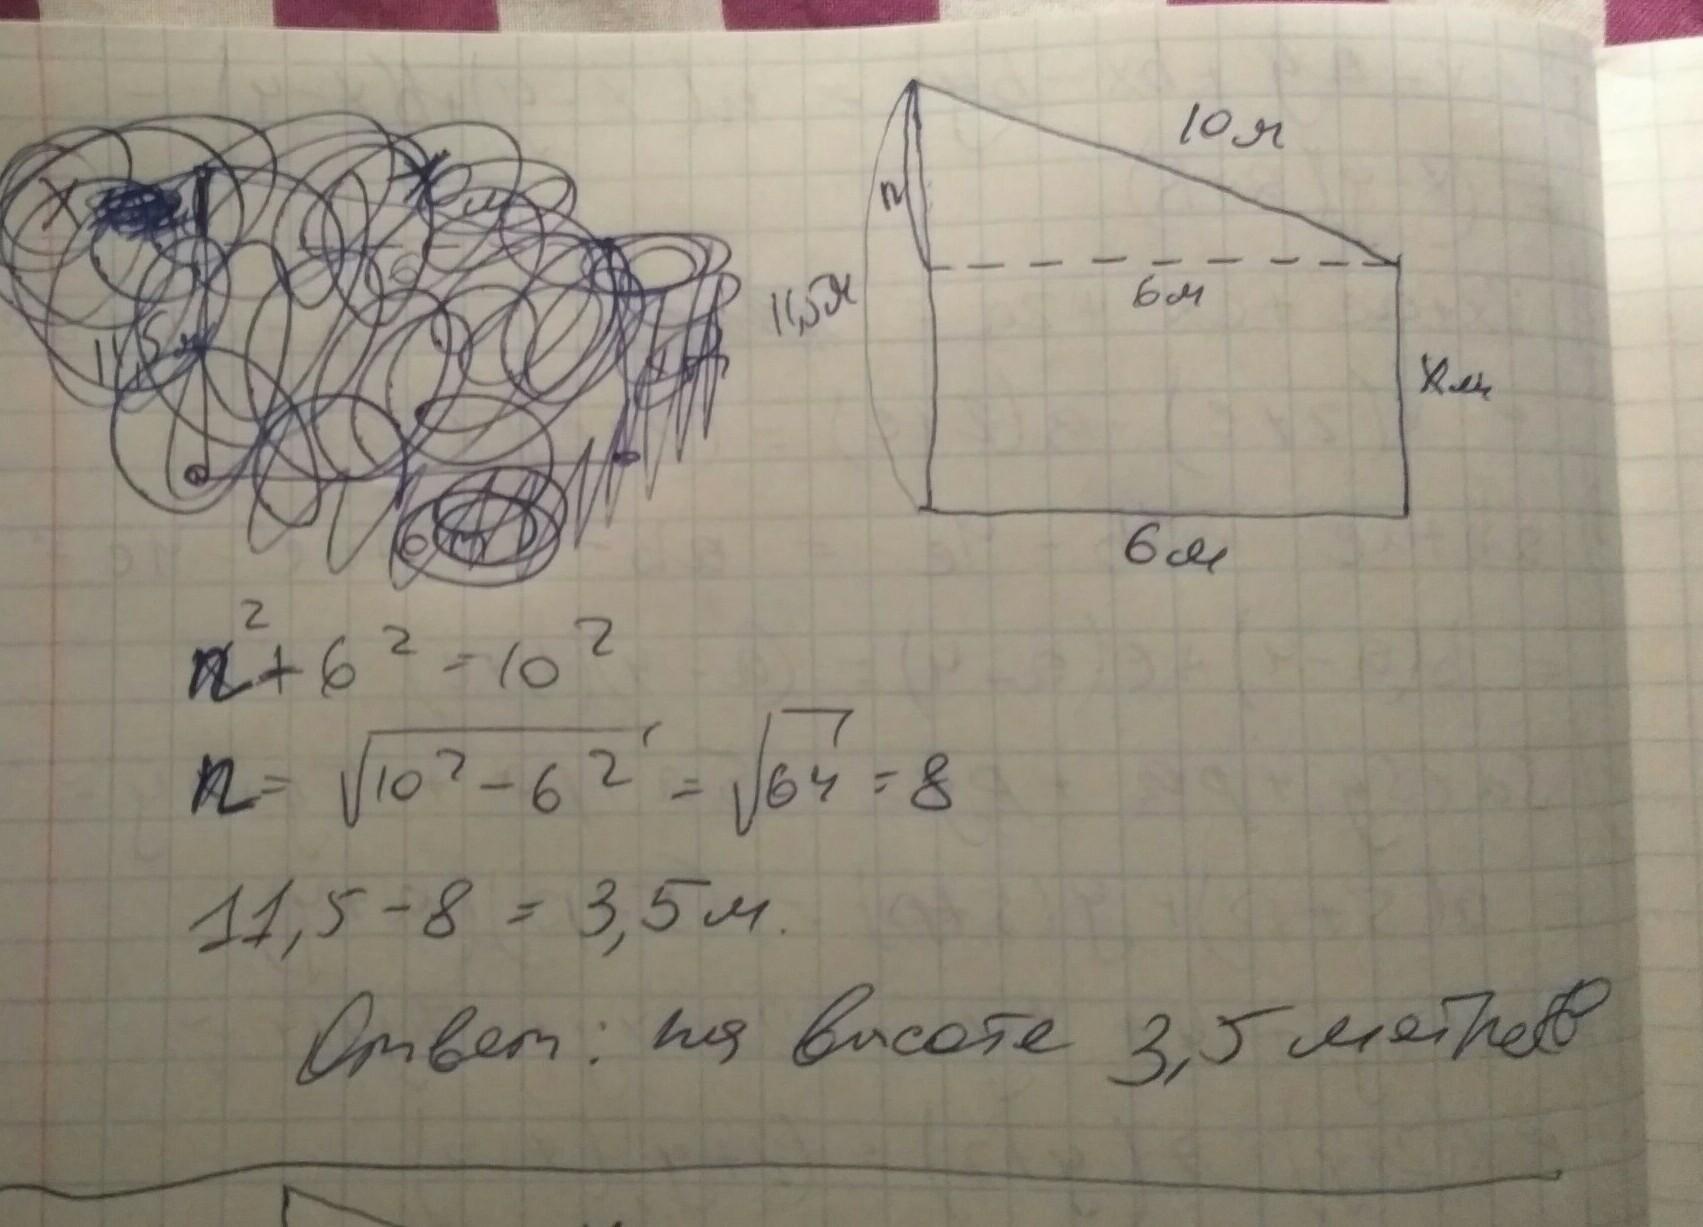 10м
n
6м
11,5м
xм
6м
n² + 6² = 10²
n = √10² - 6² = √64 = 8
11,5 - 8 = 3,5 м.
Ответ: на высоте 3,5 метров